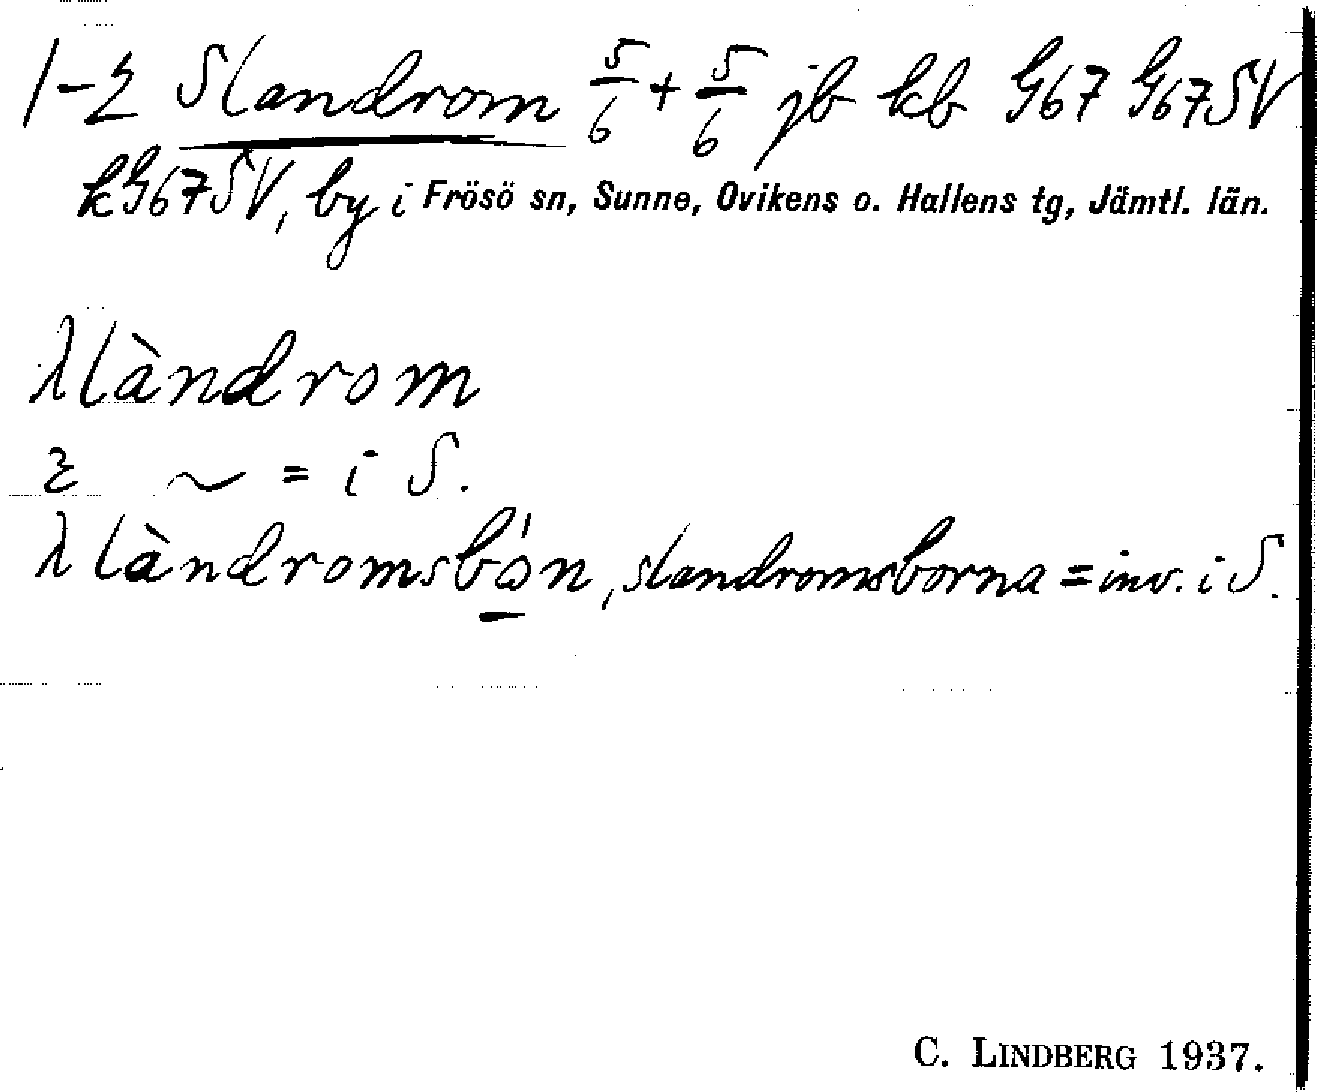 1-2 Slandrom 5/6 + 5/6 jb kb G67 G67SV
kG67SV, by i Frösö sn, Sunne, Ovikens o. Hallens tg, Jämtl. län.
λlàndrom
2 ~ = i S.
λlàndromsbón, slandromsborna = inv. i S.
C. LINDBERG 1937.